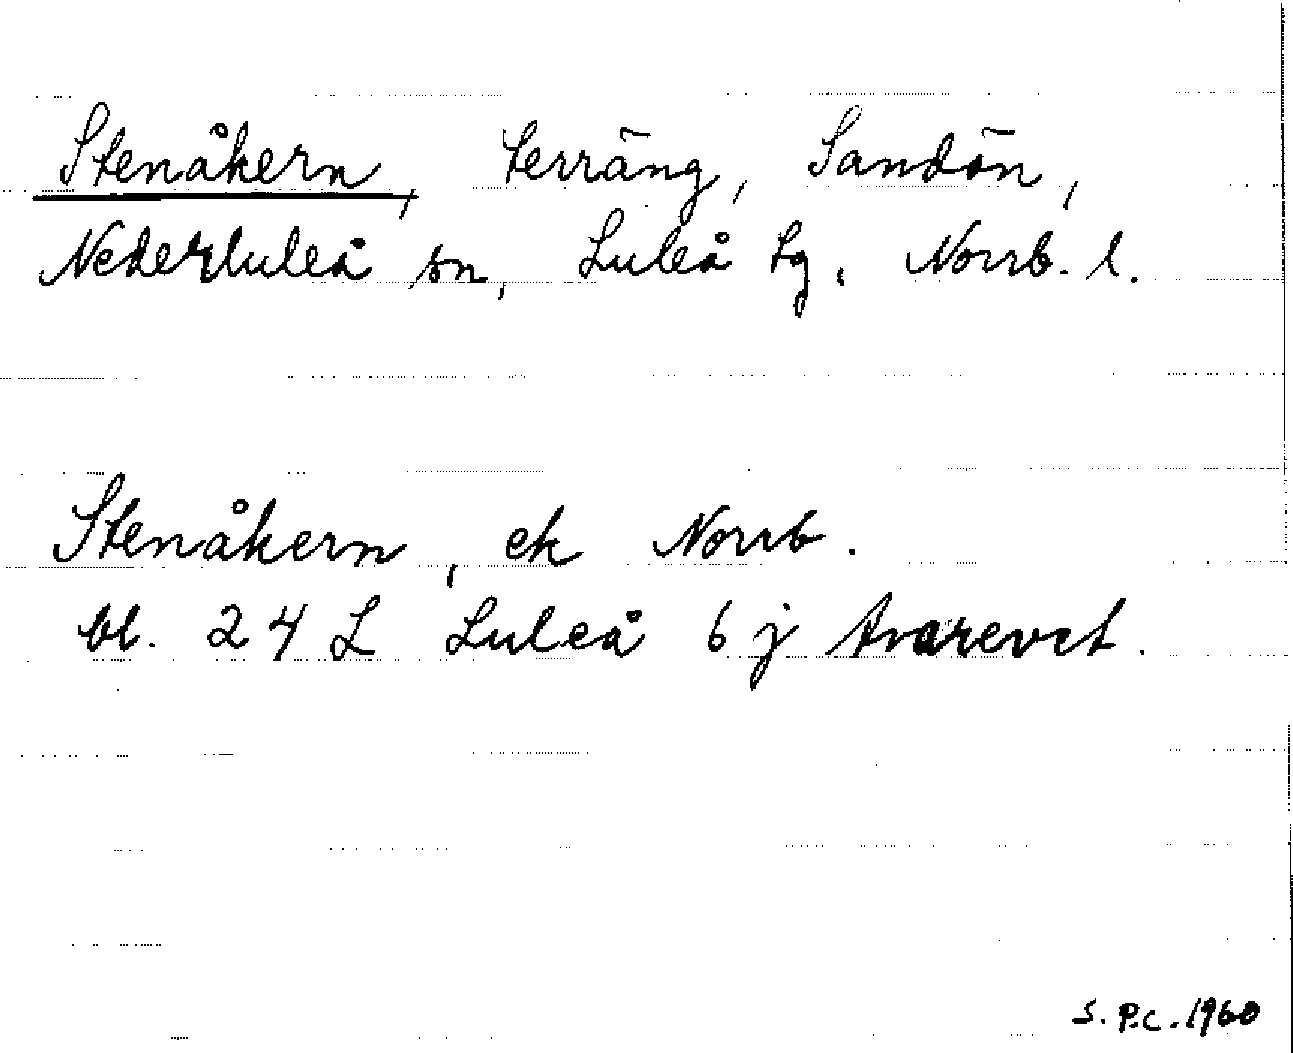 Stenåkern, terräng, Sandön,
Nederluleå sn, Luleå tg, Norrb. l.
Stenåkern, ek Norrb.
bl. 24 L Luleå 6 j Avarevet.
S. P.C. 1960